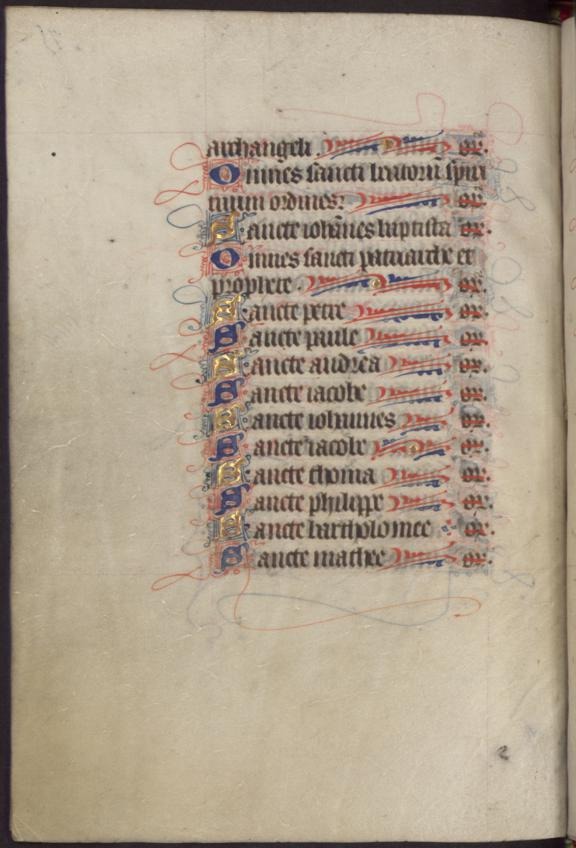 archangeli. or.
Omnes sancti beatorū spiri
tuum ordines: or.
Sancte ioh̄nes baptista or.
Omnes sancti patriarche et
prophete. or.
Sancte petre or.
Sancte paule or.
Sancte andrea or.
Sancte iacobe or.
Sancte iohannes or.
Sancte iacobe or.
Sancte thoma or.
Sancte philippe or.
Sancte bartholomee or.
Sancte mathee or.